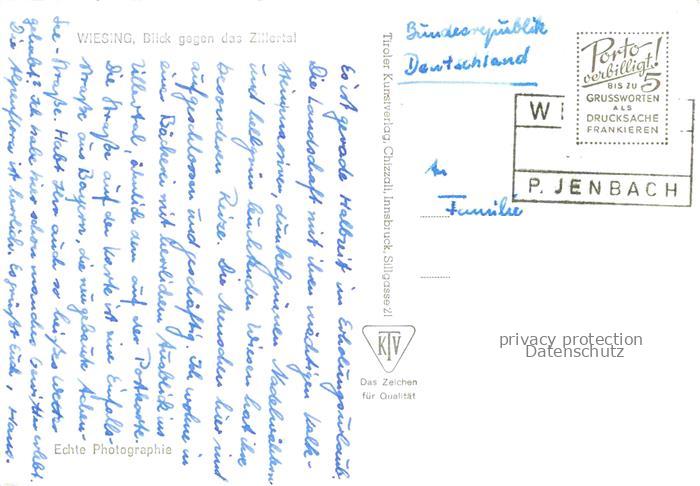 WIESING, Blick gegen das Zillertal
Es ist gerade Halbzeit im Erholungsurlaub.
Die Landschaft mit ihren mächtigen Kalk-
steinmassiven, dunkelgrünen Nadelwäldern
und hellgrün leuchtenden Wiesen hat ihre
besonderen Reize. Die Menschen hier sind
aufgeschlossen und geschäftig. Ich wohne in
einer Bäckerei mit herrlichem Ausblick ins
Zillertal, ähnlich dem auf der Postkarte.
Die Straße auf der Karte ist eine Einfalls-
straße aus Bayern, die neugebaute Achen-
see-Straße. Habt Ihr auch so heißes Wetter
gehabt? Ich habe hier schon manches Gewitter erlebt.
Die Alpenflora ist herrlich. Es grüßt Euch, Hans.
Echte Photographie
Tiroler Kunstverlag, Chizzali, Innsbruck, Sillgasse 21
KTV
Das Zeichen
für Qualität
Bundesrepublik
Deutschland
Porto
verbilligt!
BIS ZU 5
GRUSSWORTEN
ALS
DRUCKSACHE
FRANKIEREN
W
P. JENBACH
An
Familie
privacy protection
Datenschutz